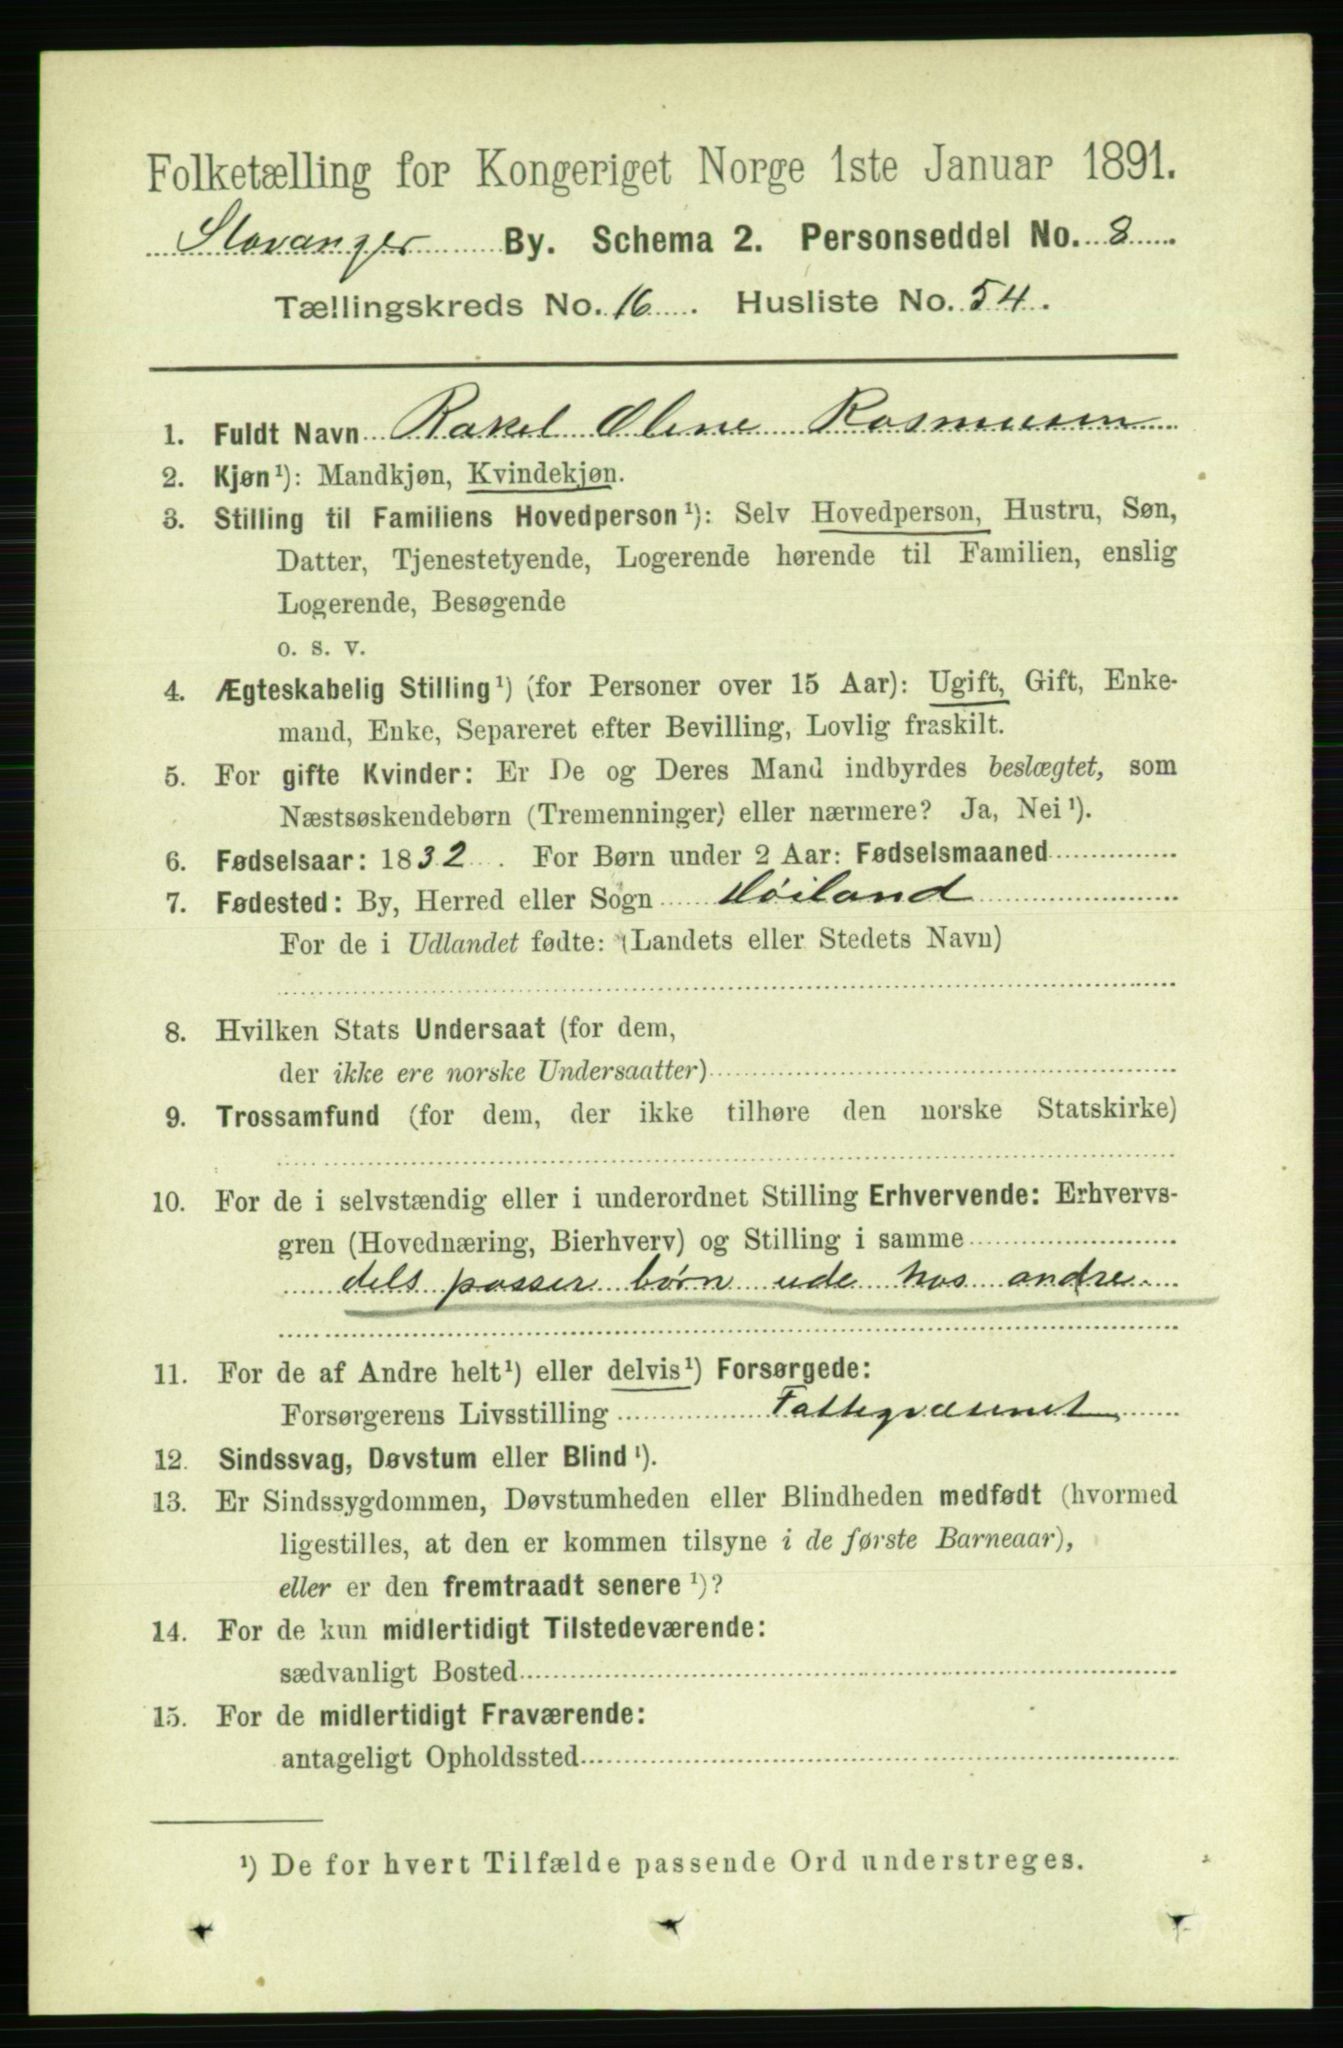 Folketælling for Kongeriget Norge 1ste Januar 1891.
Stavanger By. Schema 2. Personseddel No. 8
Tællingskreds No. 16. Husliste No. 54.
1. Fuldt Navn Rakel Olene Rasmusen
2. Kjøn¹): Mandkjøn, Kvindekjøn.
3. Stilling til Familiens Hovedperson¹): Selv Hovedperson, Hustru, Søn,
Datter, Tjenestetyende, Logerende hørende til Familien, enslig
Logerende, Besøgende
o. s. v.
4. Ægteskabelig Stilling¹) (for Personer over 15 Aar): Ugift, Gift, Enke-
mand, Enke, Separeret efter Bevilling, Lovlig fraskilt.
5. For gifte Kvinder: Er De og Deres Mand indbyrdes beslægtet, som
Næstsøskendebørn (Tremenninger) eller nærmere? Ja, Nei¹).
6. Fødselsaar: 1832. For Børn under 2 Aar: Fødselsmaaned
7. Fødested: By, Herred eller Sogn Høiland
For de i Udlandet fødte: (Landets eller Stedets Navn)
8. Hvilken Stats Undersaat (for dem,
der ikke ere norske Undersaatter)
9. Trossamfund (for dem, der ikke tilhøre den norske Statskirke)
10. For de i selvstændig eller i underordnet Stilling Erhvervende: Erhvervs-
gren (Hovednæring, Bierhverv) og Stilling i samme
dels passer børn ude hos andre
11. For de af Andre helt¹) eller delvis¹) Forsørgede:
Forsørgerens Livsstilling Fattigvæsenet
12. Sindssvag, Døvstum eller Blind¹).
13. Er Sindssygdommen, Døvstumheden eller Blindheden medfødt (hvormed
ligestilles, at den er kommen tilsyne i de første Barneaar),
eller er den fremtraadt senere¹)?
14. For de kun midlertidigt Tilstedeværende:
sædvanligt Bosted
15. For de midlertidigt Fraværende:
antageligt Opholdssted
¹) De for hvert Tilfælde passende Ord understreges.